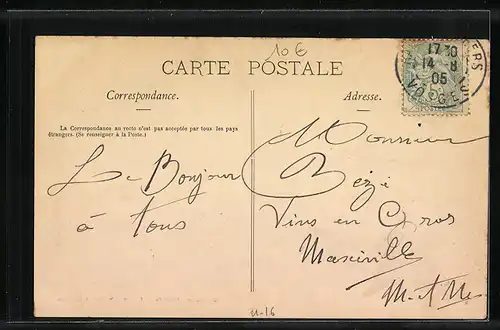 10 €
CARTE POSTALE
Correspondance.
Adresse.
La Correspondance au recto n'est pas acceptée par tous les pays
étrangers. (Se renseigner à la Poste.)
17 30
14 - 8
05
VOSGES
Le Bonjour
à tous
Monsieur
Bézé
Vins en Gros
Maxéville
M-et-M
11-16